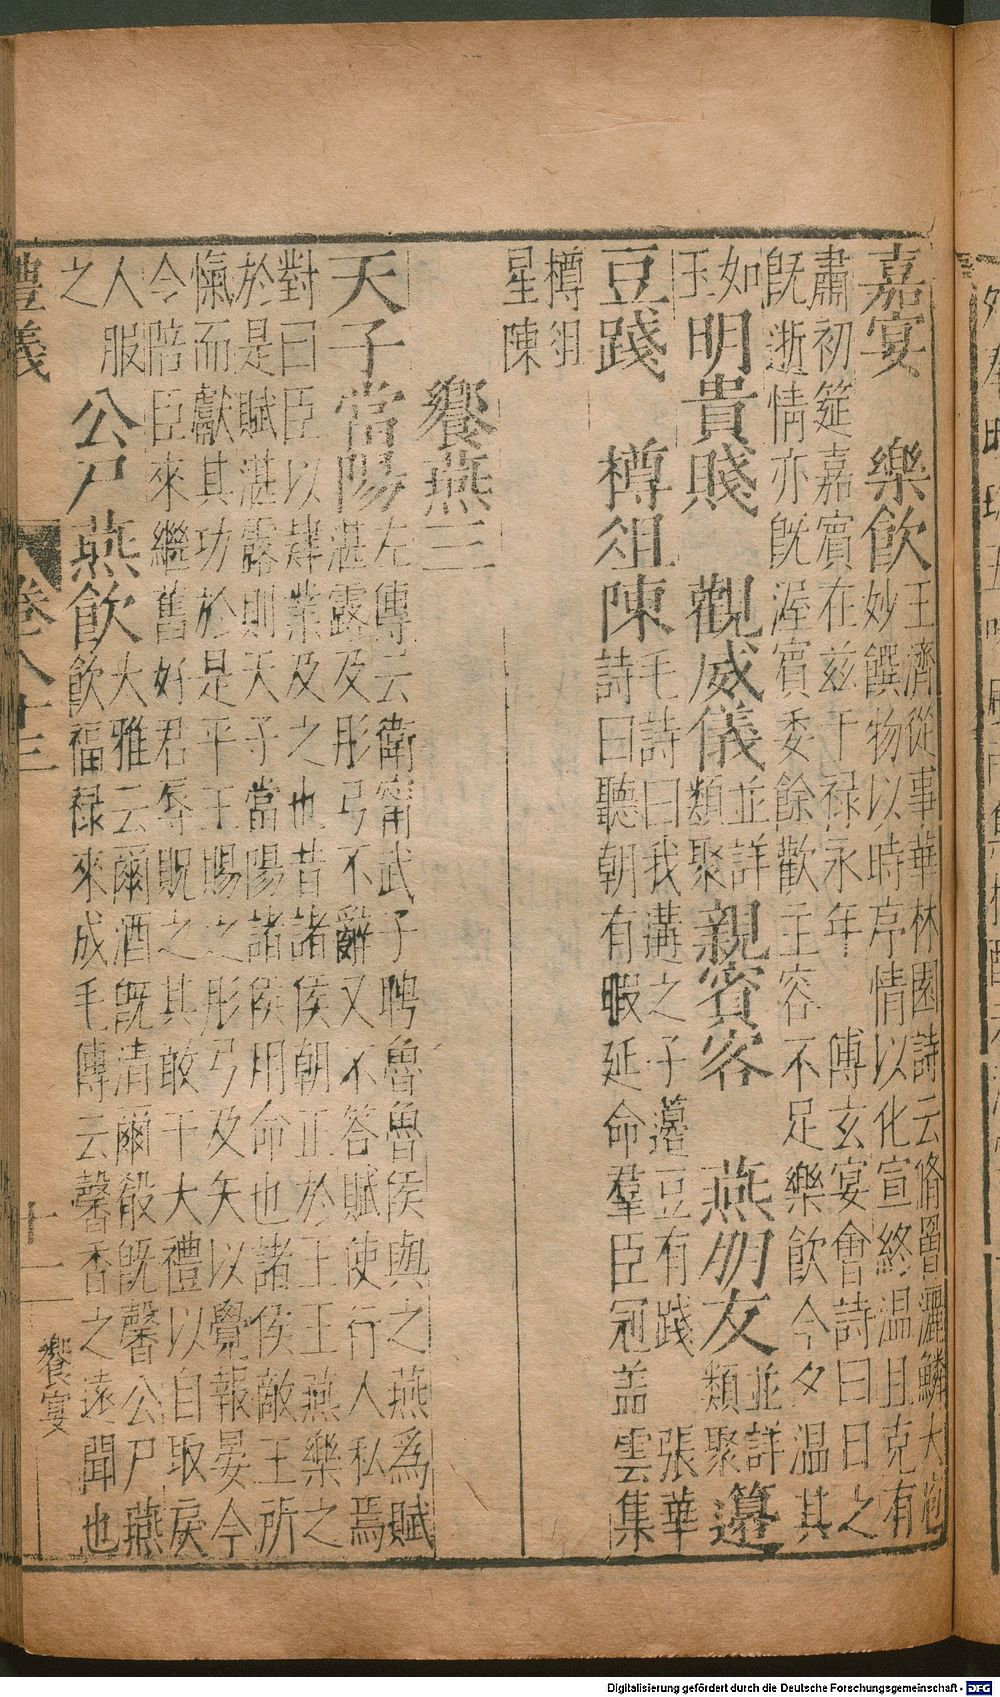 嘉宴　樂飲王濟從事華林園詩云脩罾灑鱗大
妙饌物以時序情以化宣終温且克有
肅初筵嘉賓在兹干禄永年　傅玄宴會詩曰日之
旣逝情亦旣渥賓委餘歡主容不足樂飲今夕温其
如
玉明貴賤　觀威儀並詳
類聚親賓客　燕朋友並詳
類聚籩
豆踐　樽俎陳毛詩曰我遘之子籩豆有踐　張華
詩曰聽朝有暇延命羣臣冠盖雲集
樽俎
星陳
饗燕三
天子當陽左傳云衛甯武子聘魯魯侯與之燕為賦
湛露及彤弓不辭又不答賦使行人私焉
對曰臣以肄業及之也昔諸侯朝正於王王燕樂之
於是賦湛露則天子當陽諸侯用命也諸侯敵王所
愾而獻其功於是平王賜之彤弓及矢以覺報晏今
今陪臣來繼舊好君辱貺之其敢干大禮以自取戾
人服
之　公尸燕飲大雅云爾酒旣清爾殽旣馨公尸燕
飲福禄來成毛傳云馨香之遠聞也
禮義
卷八十三
十一
饗宴
Digitalisierung gefördert durch die Deutsche Forschungsgemeinschaft - DFG